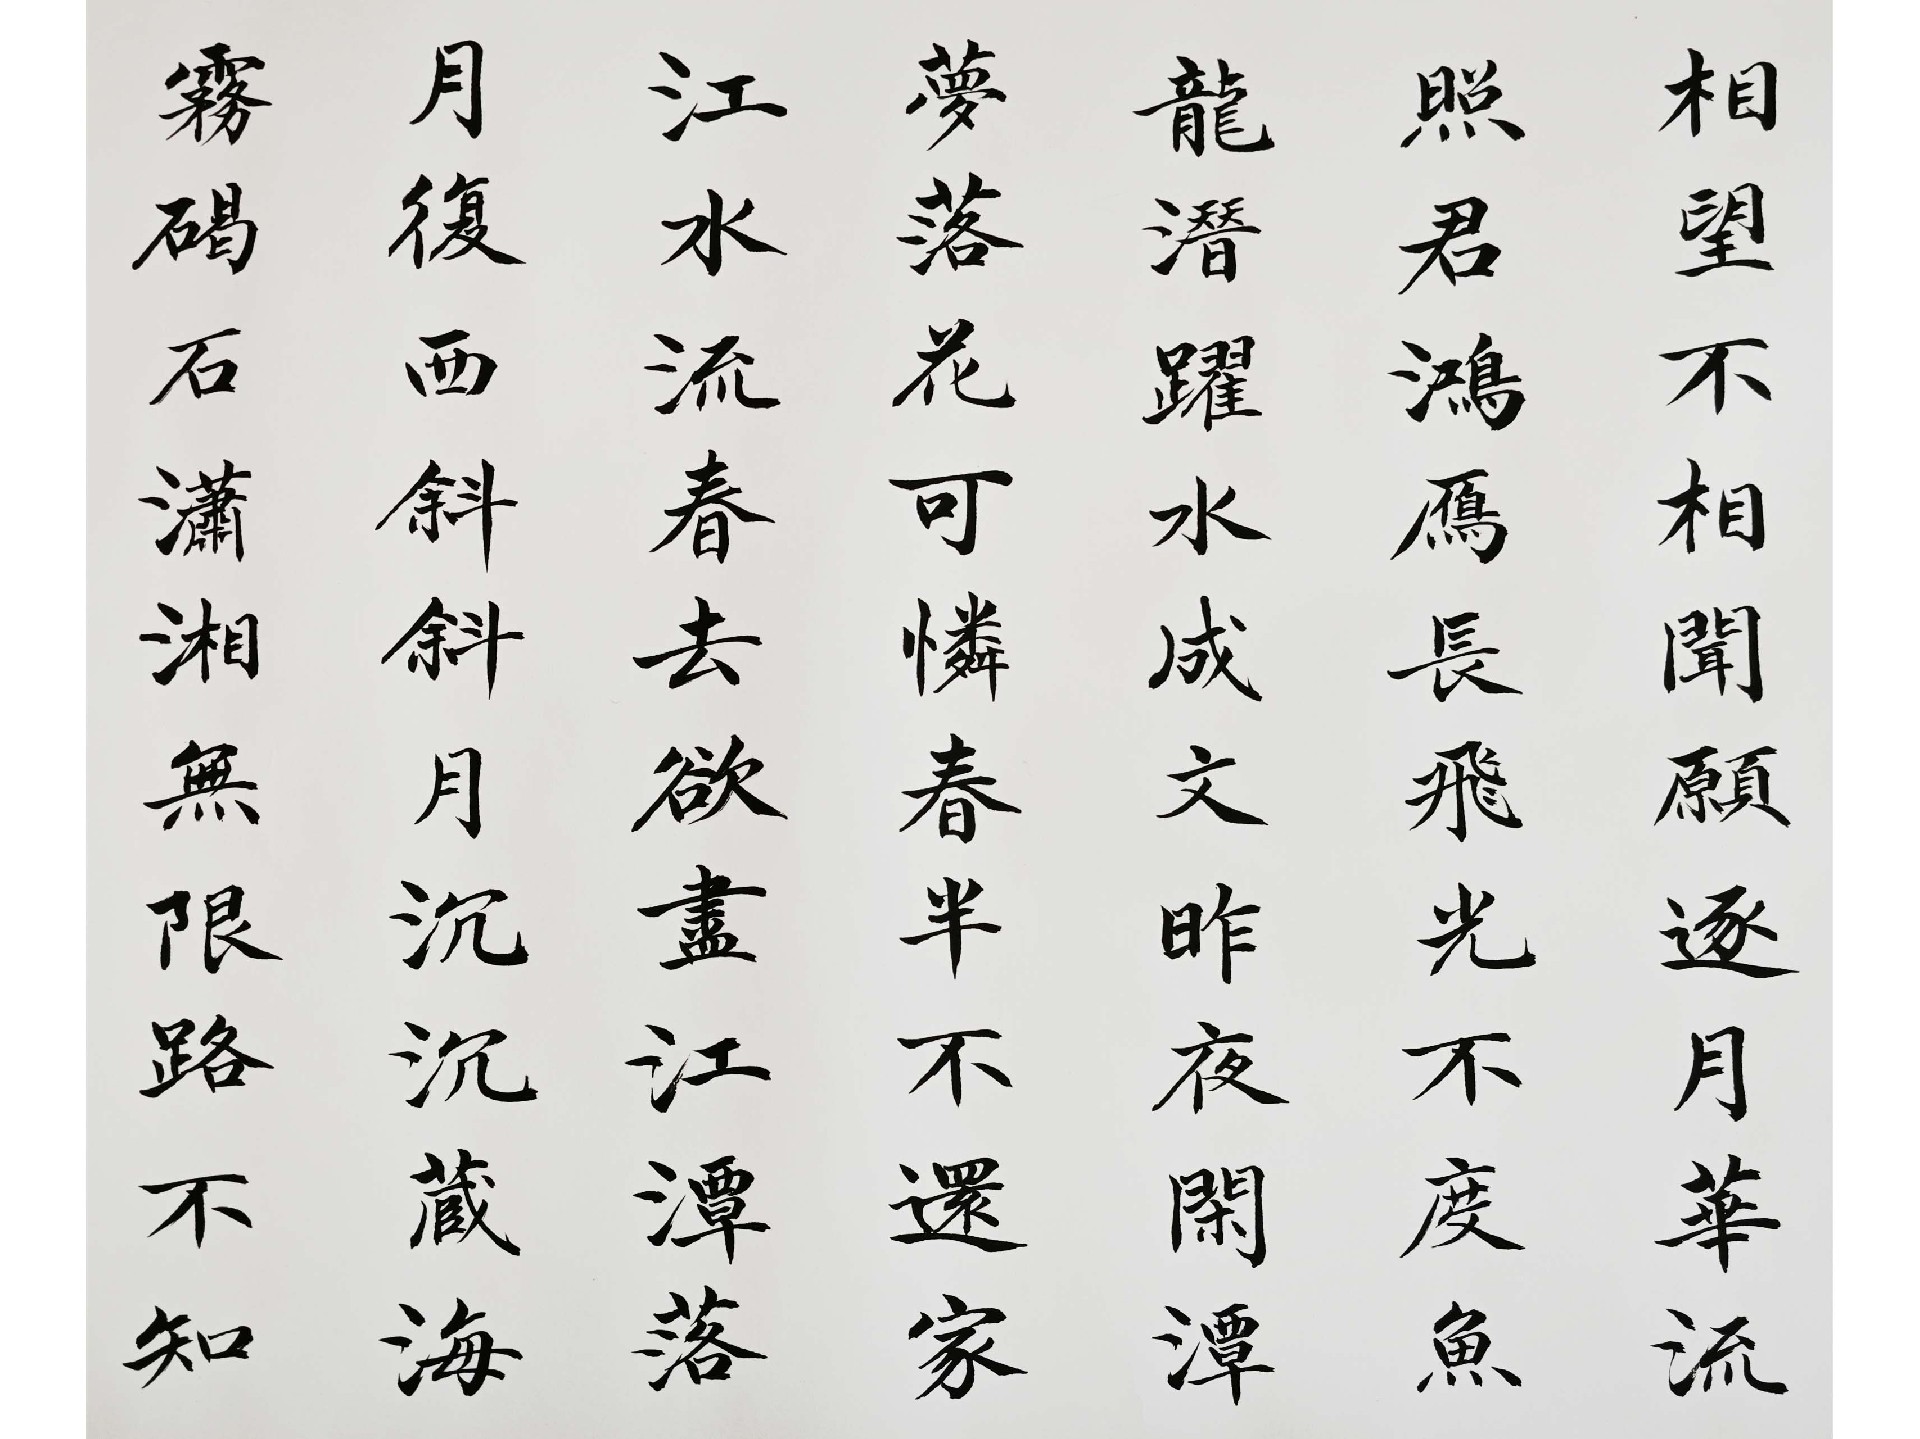 相望不相聞願逐月華流
照君鴻鴈長飛光不度魚
龍潛躍水成文昨夜閑潭
夢落花可憐春半不還家
江水流春去欲盡江潭落
月復西斜斜月沉沉蔵海
霧碣石瀟湘無限路不知